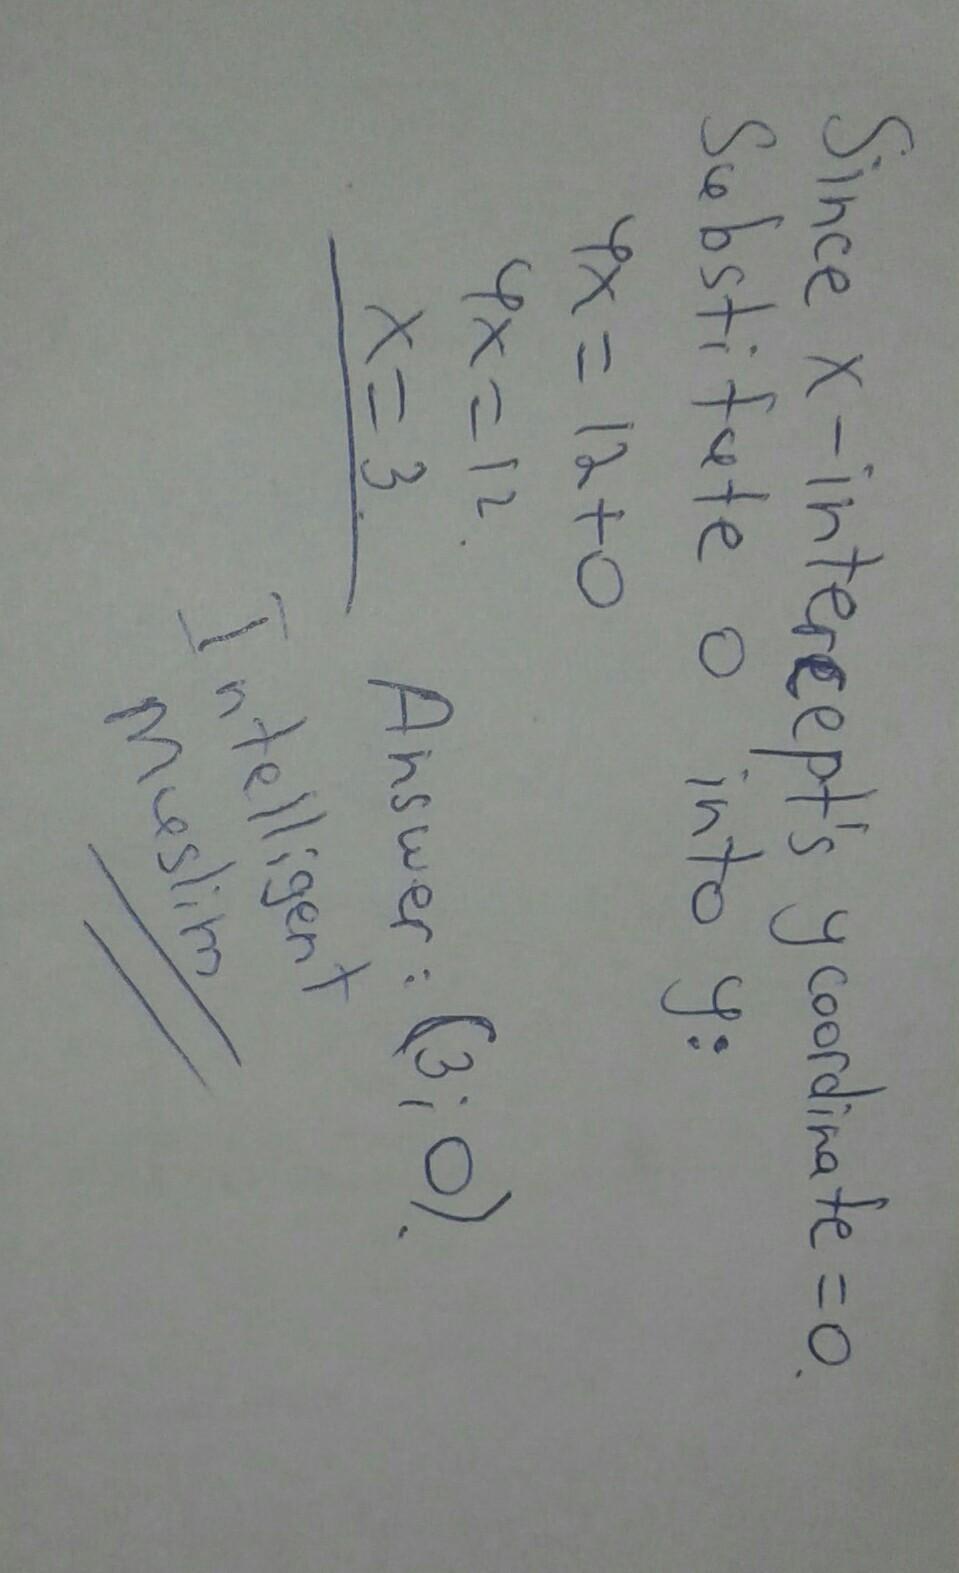 Since x-intercept's y coordinate = 0.
Substitute 0 into y:
4x = 12 + 0
4x = 12.
x = 3.
Answer: (3; 0).
Intelligent
Muslim